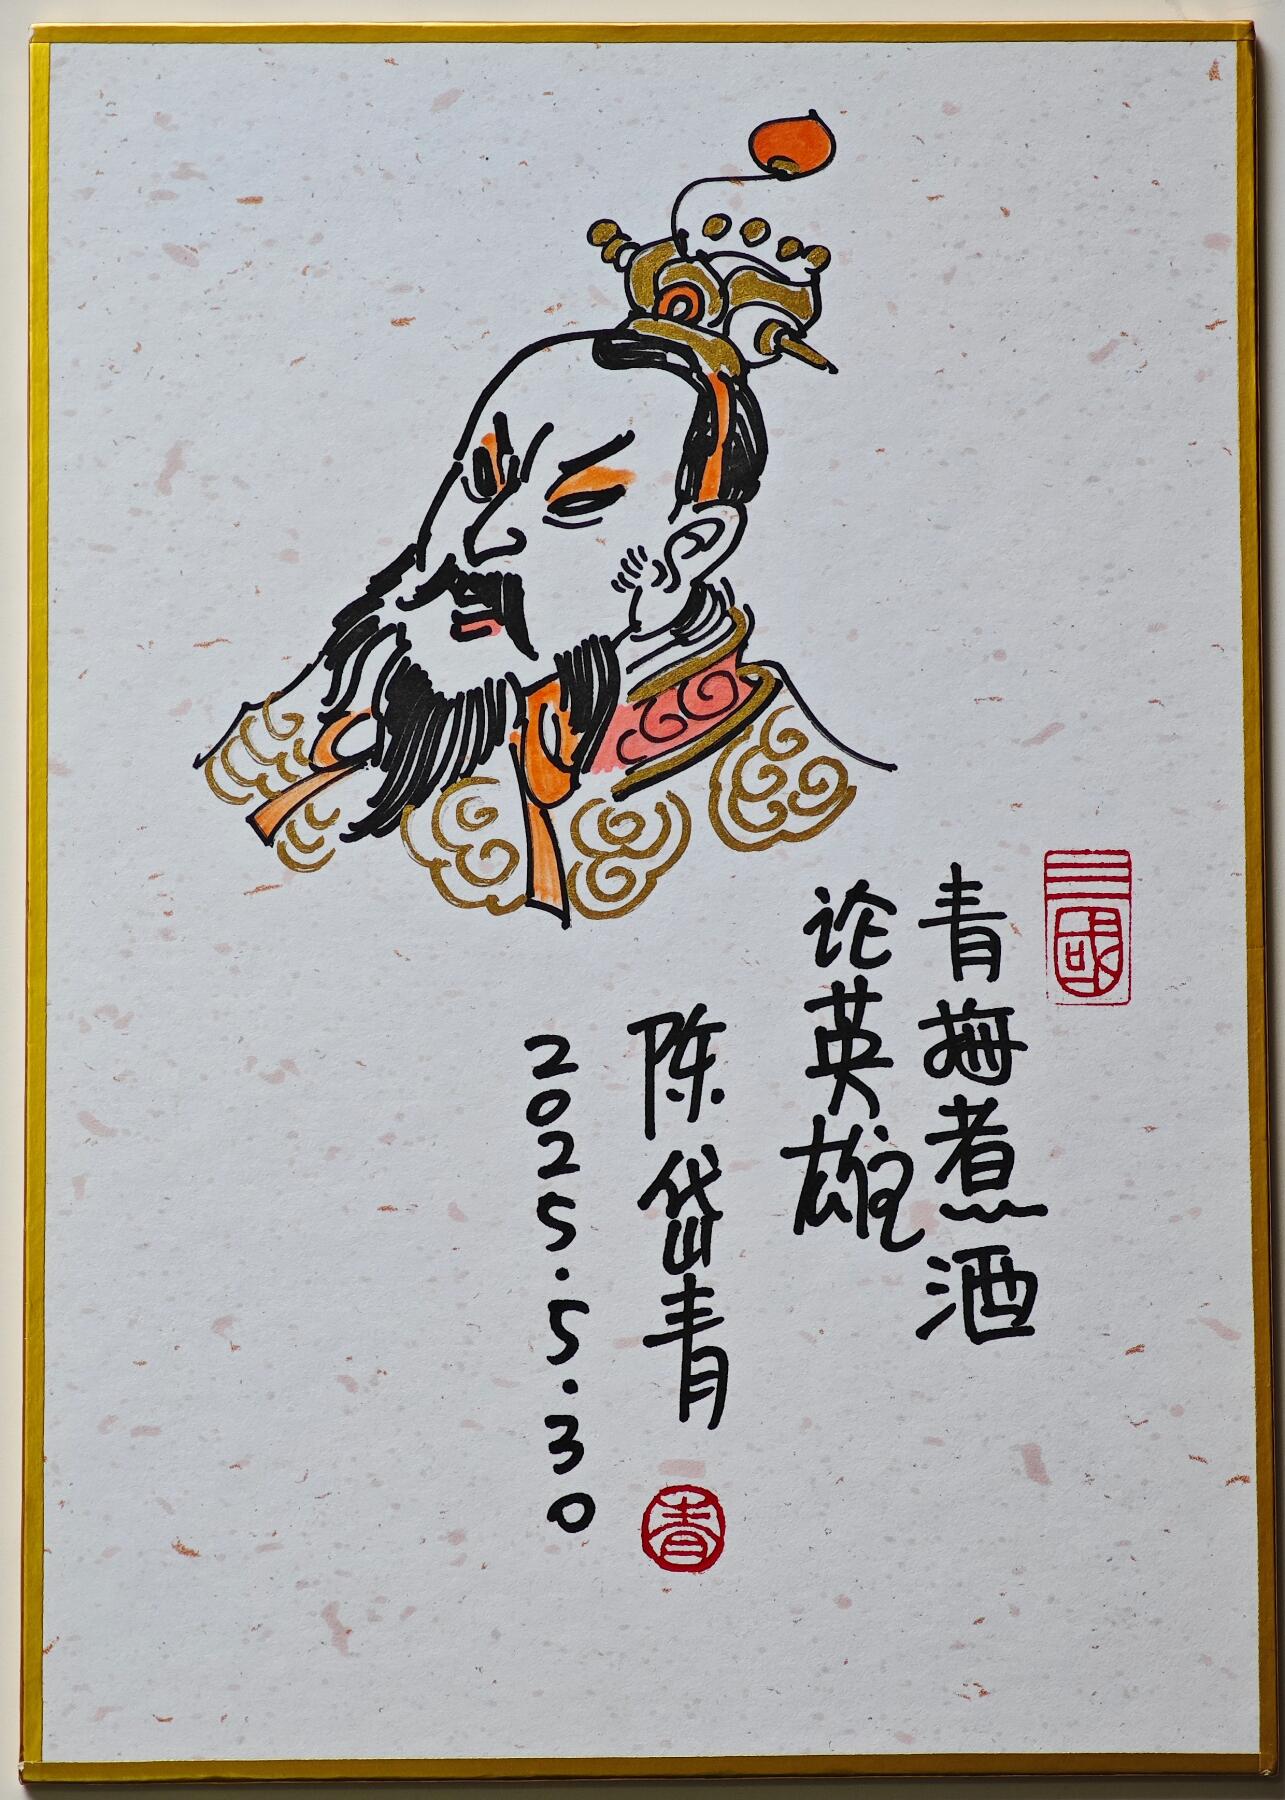 三国
青梅煮酒
论英雄
陈岱青
2025.5.30
青